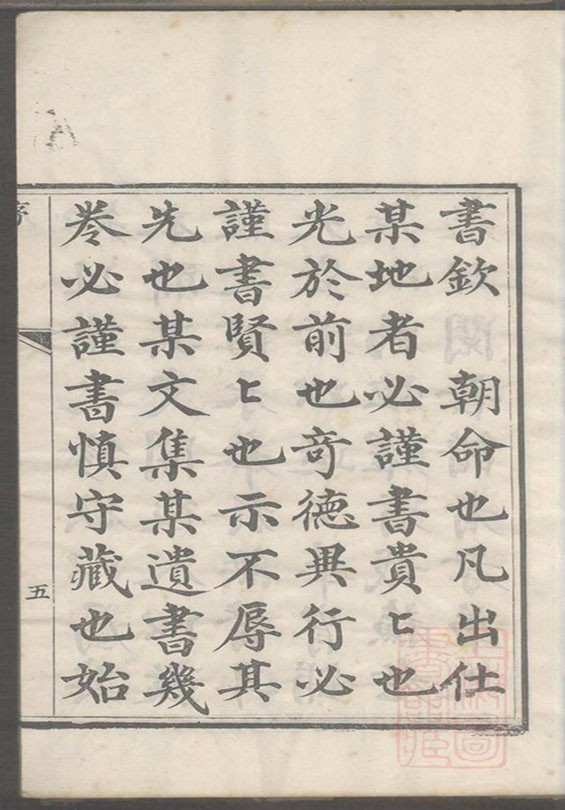 書欽　朝命也凡出仕
某地者必謹書貴〻也
光於前也竒德異行必
謹書賢〻也示不辱其
先也某文集某遺書幾
卷必謹書慎守藏也始
五